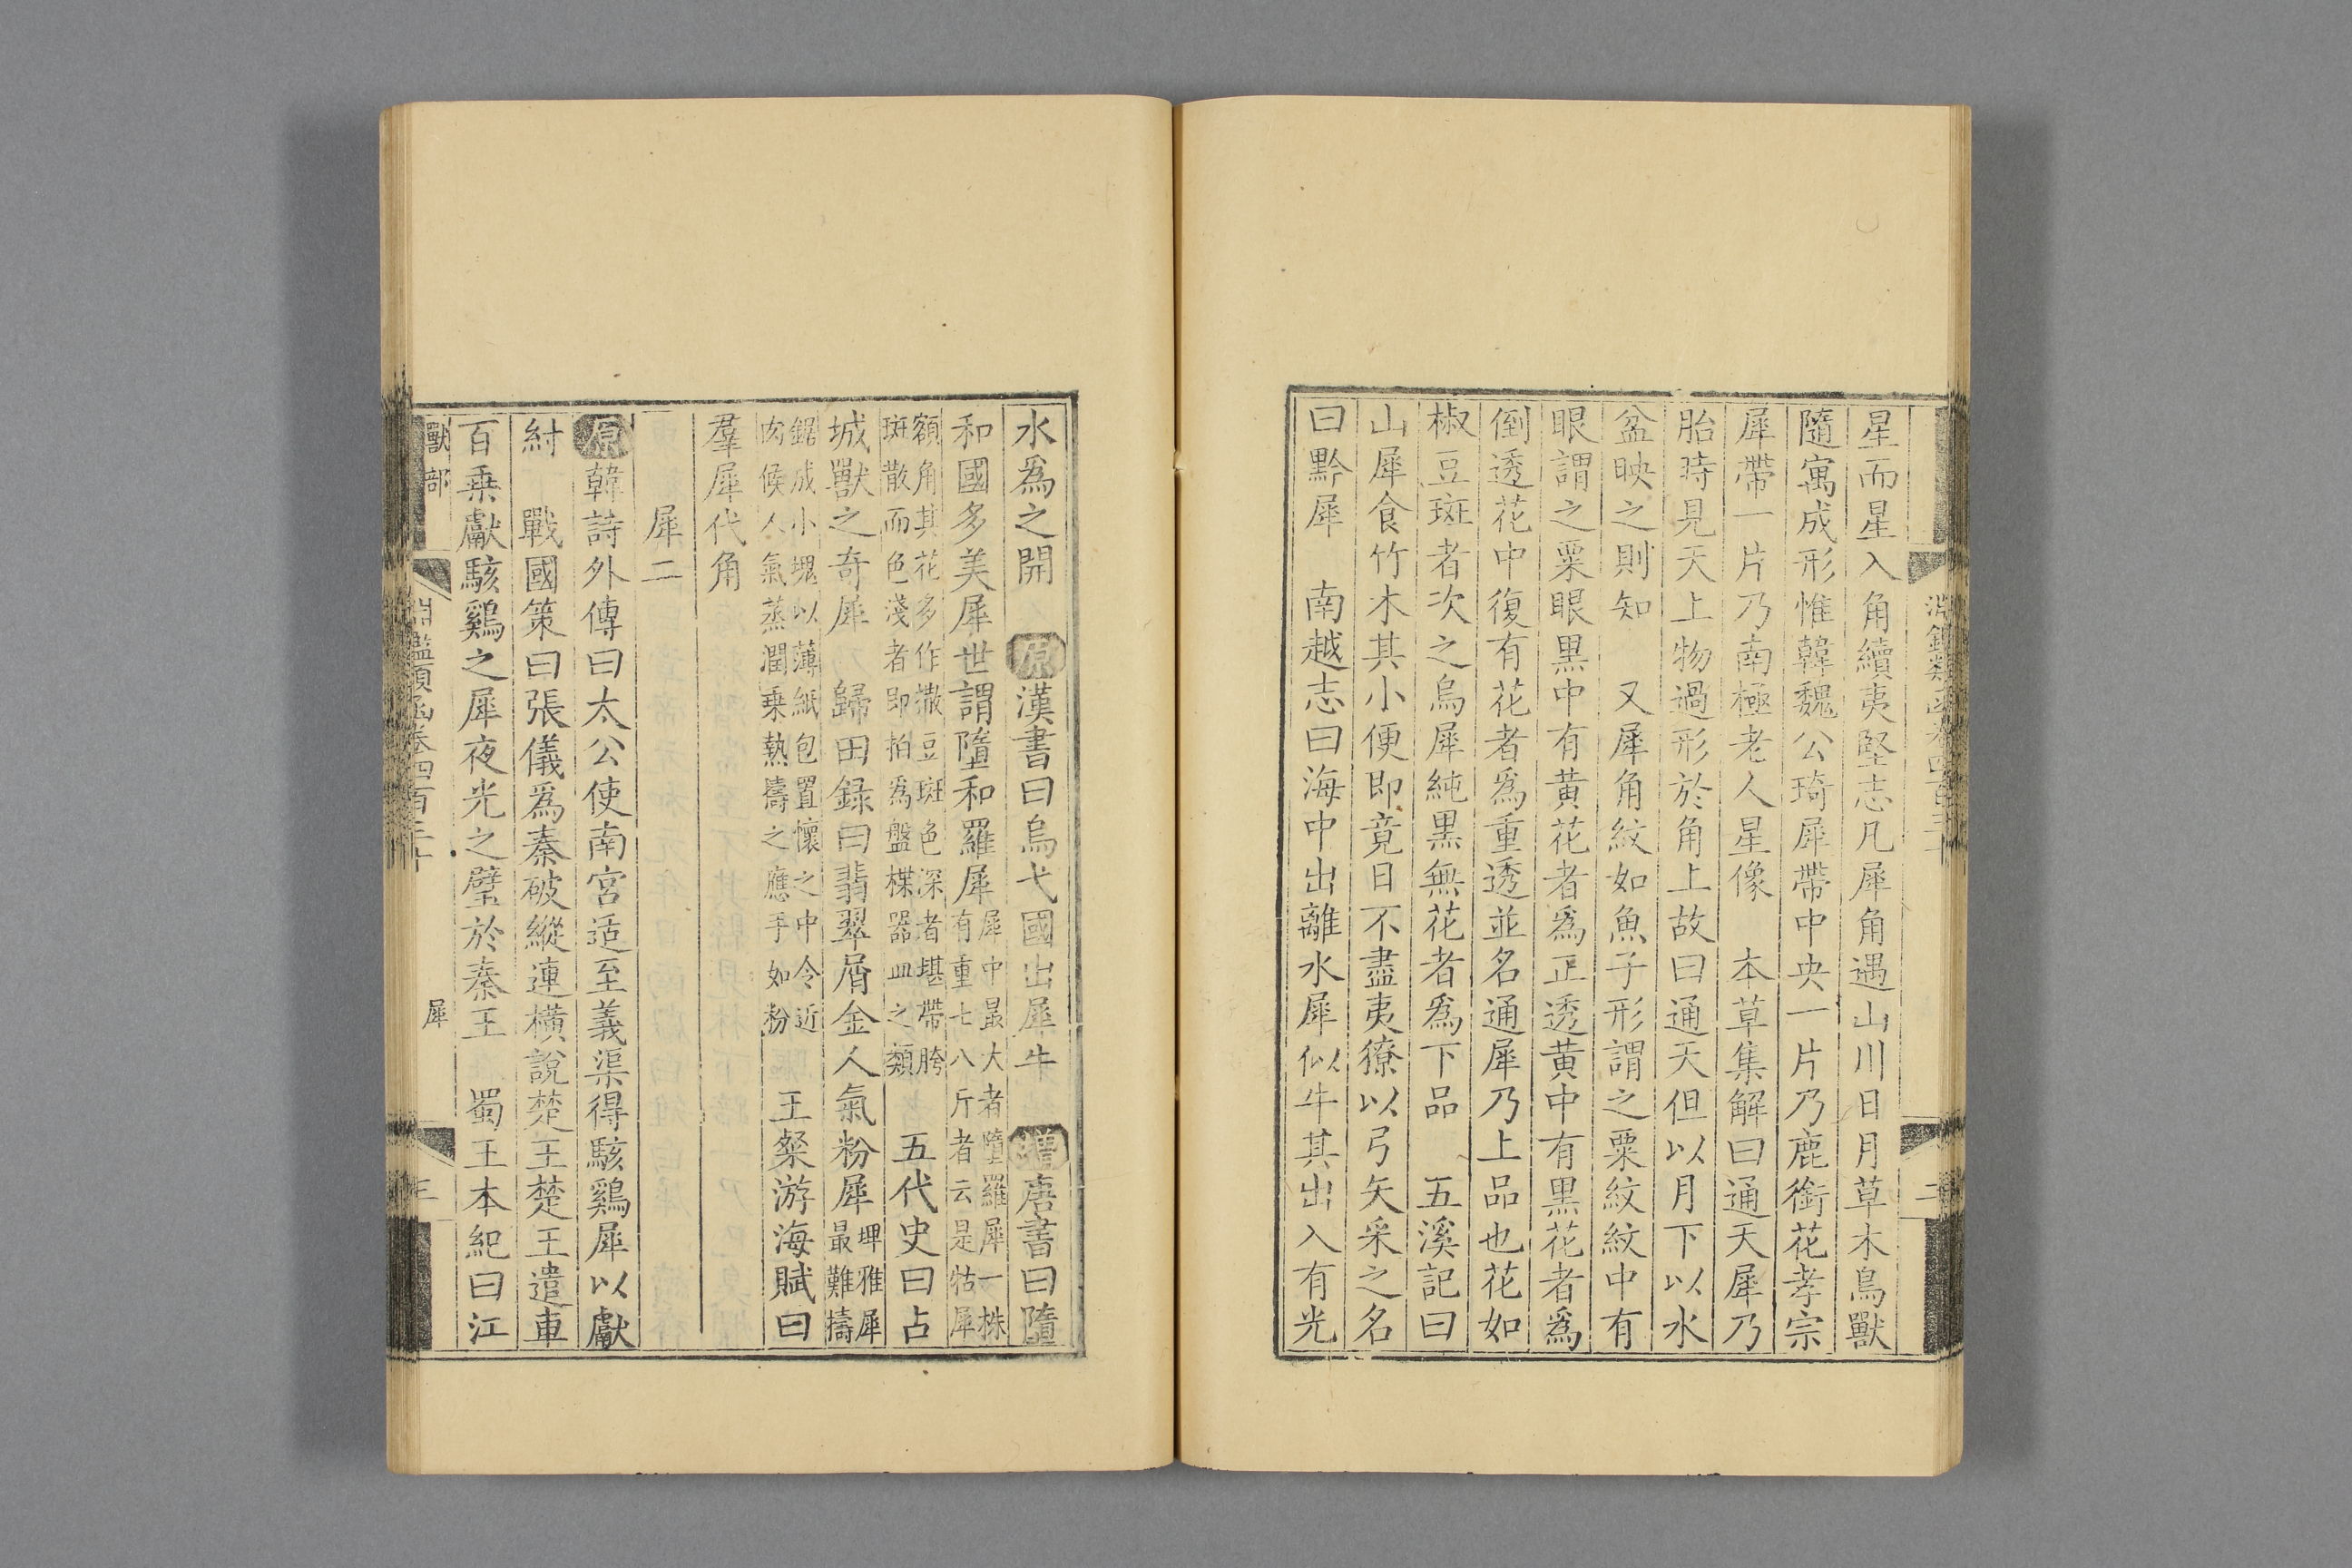 星而星入角續夷堅志凡犀角遇山川日月草木鳥獸
隨寓成形惟韓魏公琦犀帶中央一片乃鹿銜花孝宗
犀帶一片乃南極老人星像　本草集解曰通天犀乃
胎時見天上物過形於角上故曰通天但以月下以水
盆映之則知　又犀角紋如魚子形謂之粟紋紋中有
眼謂之粟眼黒中有黄花者爲正透黄中有黒花者爲
倒透花中復有花者爲重透並名通犀乃上品也花如
椒豆斑者次之烏犀純黒無花者爲下品　五溪記曰
山犀食竹木其小便即竟日不盡夷獠以弓矢采之名
曰黔犀　南越志曰海中出離水犀似牛其出入有光
水爲之開　原漢書曰烏弋國出犀牛　增唐書曰墮
和國多美犀世謂墮和羅犀犀中最大者墮羅犀一株
有重七八斤者云是牯犀
額角其花多作撒豆斑色深者堪帶胯
斑散而色淺者即拍爲盤楪器皿之類　五代史曰占
城獸之奇犀　歸田録曰翡翠屑金人氣粉犀埤雅犀
最難擣
鋸成小塊以薄紙包置懷之中令近
肉候人氣蒸潤乗熱擣之應手如粉　王粲游海賦曰
羣犀代角
犀二
原韓詩外傳曰太公使南宮适至義渠得駭鷄犀以獻
紂　戰國策曰張儀爲秦破縱連横說楚王楚王遣車
百乗獻駭鷄之犀夜光之璧於秦王　蜀王本紀曰江
獸部
犀
三